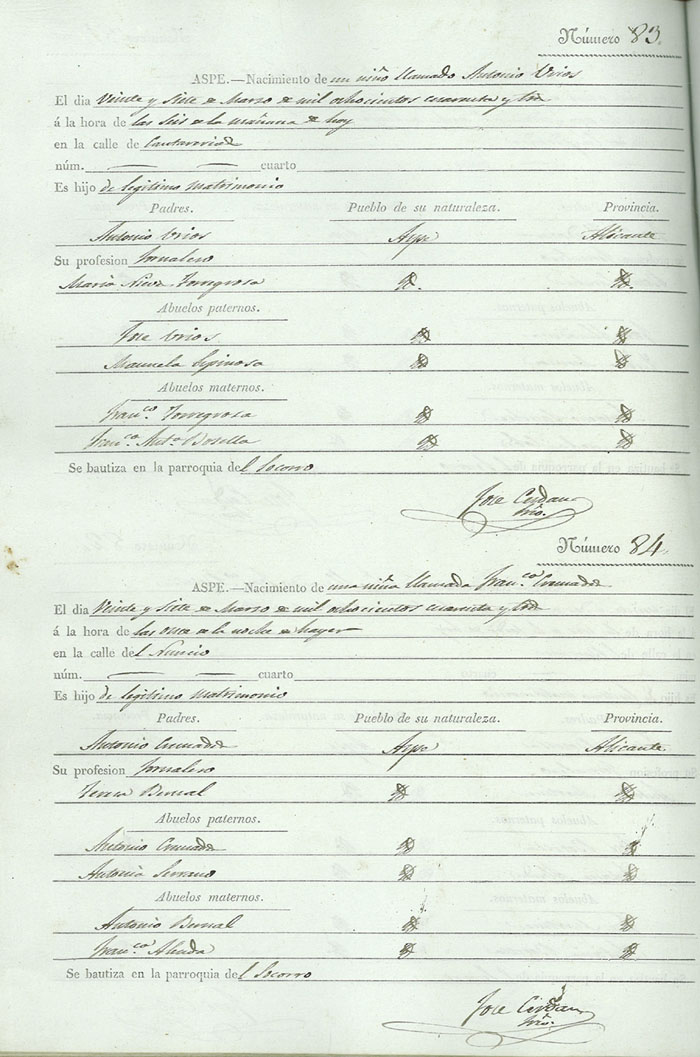 Número 83.
ASPE.—Nacimiento de un niño llamado Antonio Urios
El dia Veinte y Siete de Marzo de mil ochocientos cuarenta y tres
á la hora de las seis de la mañana de hoy
en la calle de
núm. cuarto
Es hijo de legitimo matrimonio
Padres. Pueblo de su naturaleza. Provincia.
Antonio Urios Aspe Alicante
Su profesion Jornalero
Maria Nieves Torregrosa
Abuelos paternos.
Jose Urios
Manuela Espinosa
Abuelos maternos.
Franco. Torregrosa
Franca. Anta. Botella
Se bautiza en la parroquia del Socorro
Jose Cerdan
Srio.
Número 84.
ASPE.—Nacimiento de una niña llamada Franca. Cremades
El dia Veinte y Siete de Marzo de mil ochocientos cuarenta y tres
á la hora de las once de la noche de hayer
en la calle del Nuncio
núm. cuarto
Es hijo de legitimo matrimonio
Padres. Pueblo de su naturaleza. Provincia.
Antonio Cremades Aspe Alicante
Su profesion Jornalero
Teresa Bernal
Abuelos paternos.
Antonio Cremades
Antonia Serrano
Abuelos maternos.
Antonio Bernal
Franca. Alenda
Se bautiza en la parroquia del Socorro
Jose Cerdan
Srio.